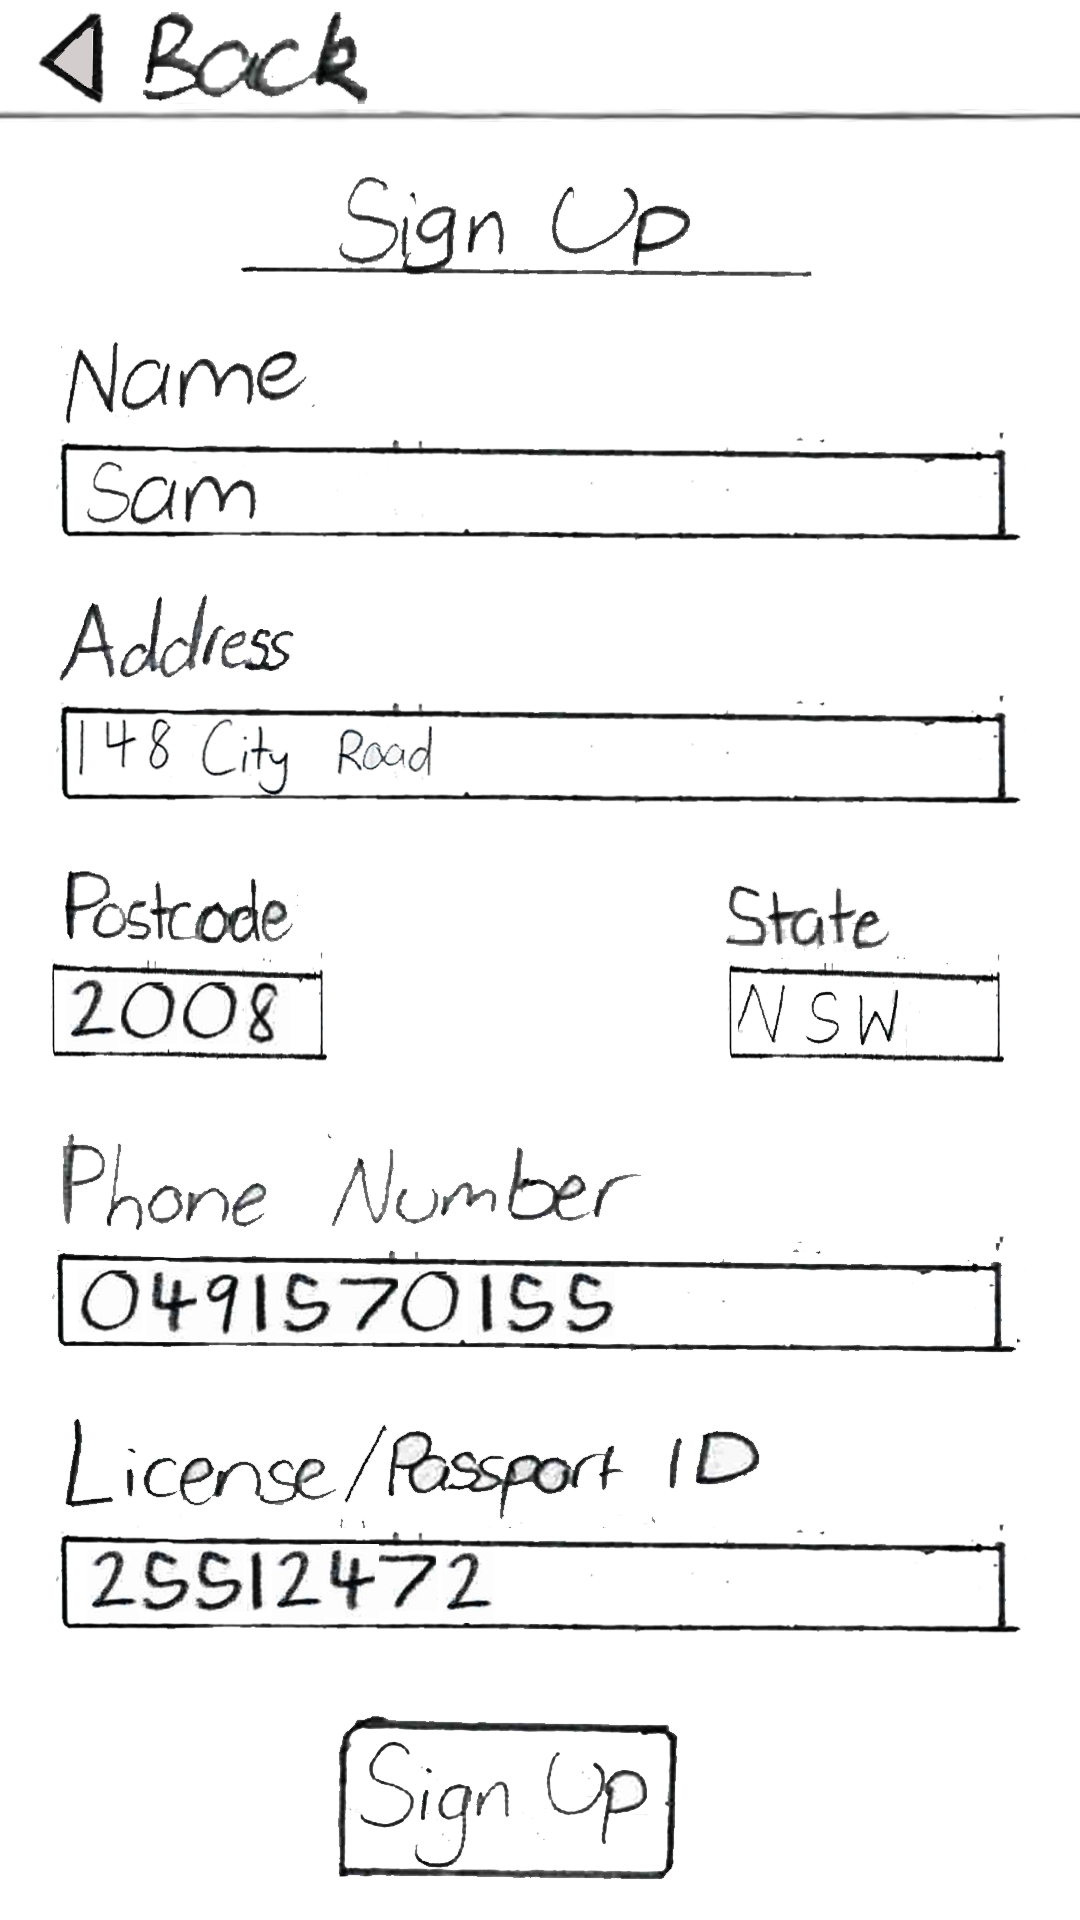 Back
Sign Up
Name
Sam
Address
148 City Road
Postcode State
2008 NSW
Phone Number
0491570155
License/Passport ID
25512472
Sign Up